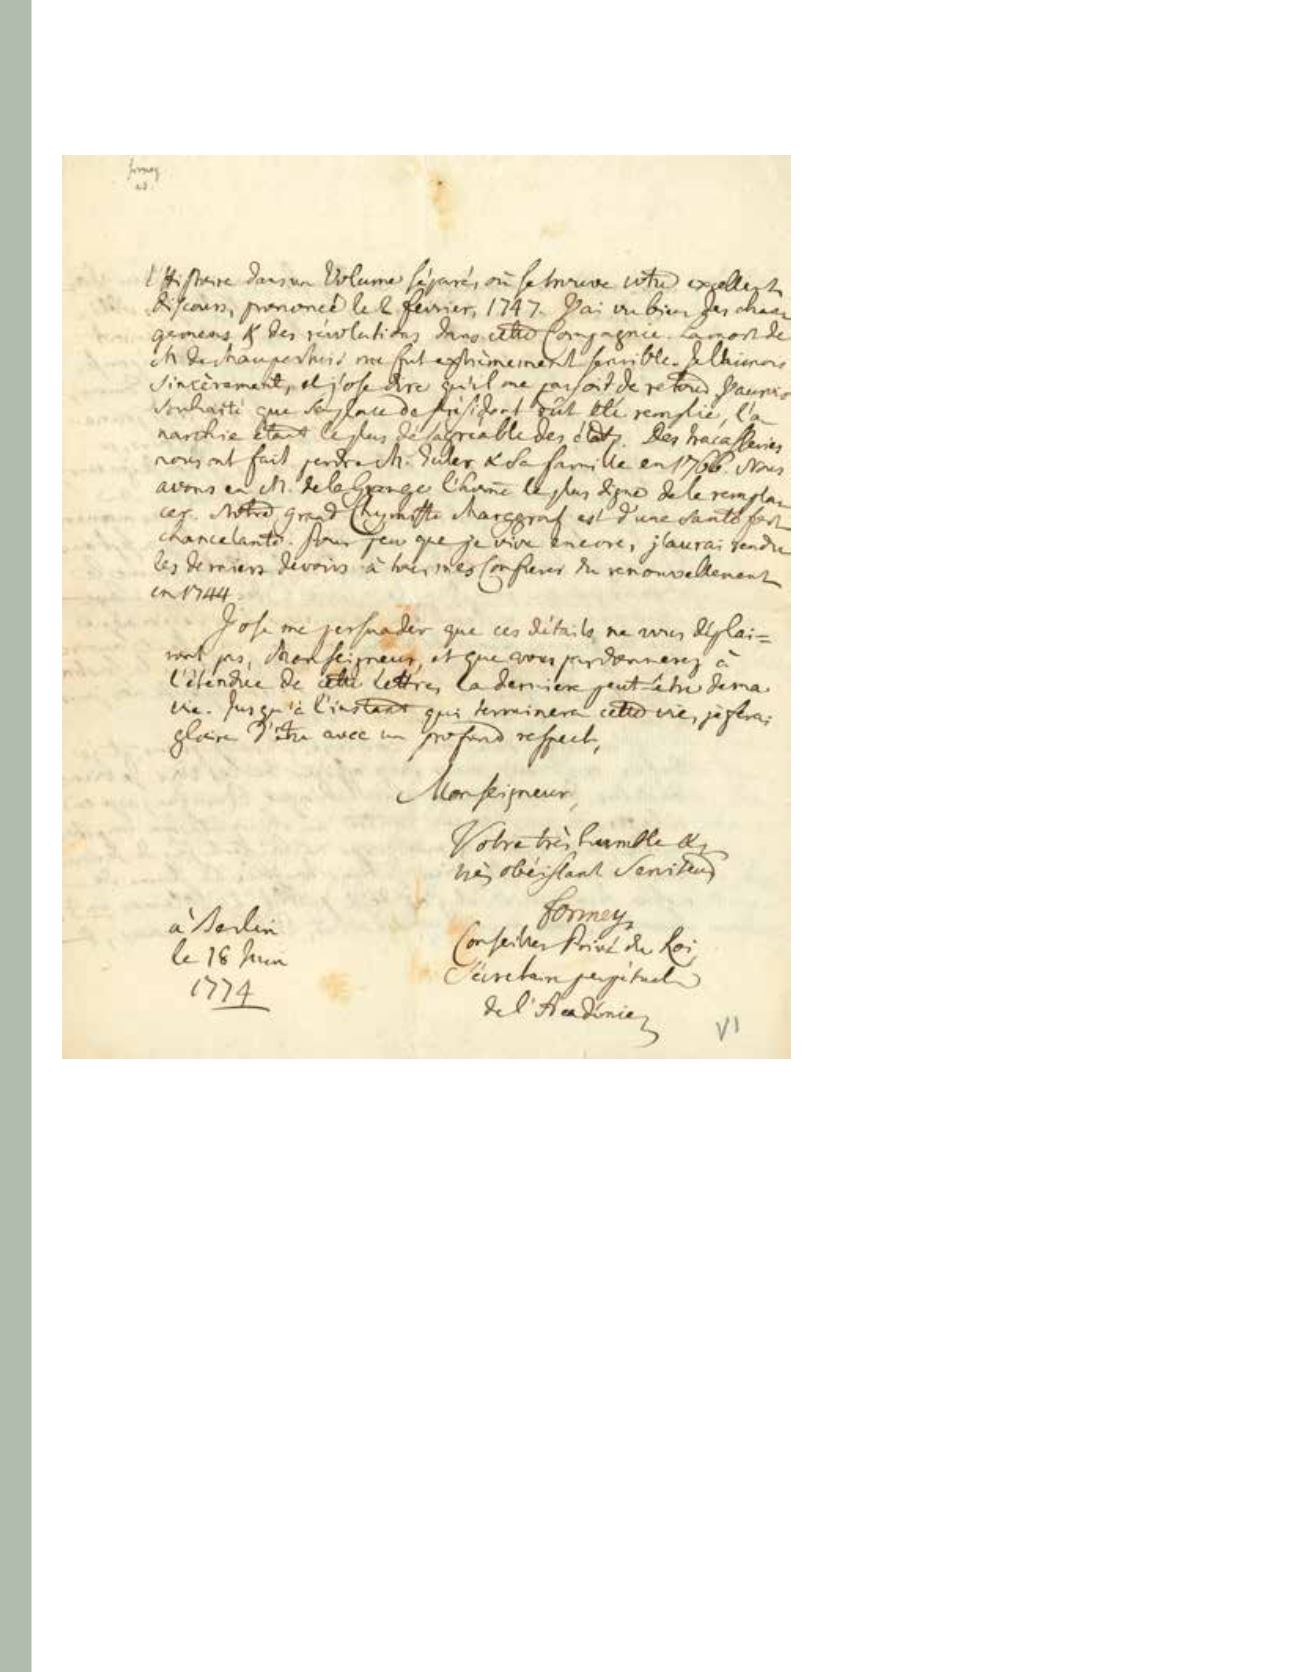 formey
l'Histoire dans un Volume séparé, où se trouve votre excellent
Discours, prononcé le 2 fevrier, 1747. J'ai vu bien des chan
gemens & des révolutions dans cette Compagnie. La mort de
M. de Maupertuis me fut extrèmement sensible. Je l'aimois
sincèrement, et j'ose dire qu'il me païoit de retour. J'aurois
souhaité que sa place de Président eût été remplie, l'a
narchie étant le plus désagréable des états. Des tracasseries
nous ont fait perdre M. Euler & sa famille en 1766. Nous
avons en M. de la Grange l'home le plus digne de le rempla
cer. Notre grand Chymiste Marggraf est d'une santé fort
chancelante. Pour peu que je vive encore, j'aurai rendu
les derniers devoirs à tous mes Confreres du renouvellement
en 1744.
J'ose me persuader que ces détails ne vous déplai=
ront pas, Monseigneur, et que vous pardonnerez à
l'étendue de cette Lettre, la derniere peut-être de ma
vie. Jusqu'à l'instant qui terminera cette vie, je ferai
gloire d'être avec un profond respect,
Monseigneur,
Votre très humble &
très obéissant Serviteur
formey,
Conseiller Privé du Roi,
Sécretaire perpétuel
de l'Académie
à Berlin
le 18 Juin
1774
VI